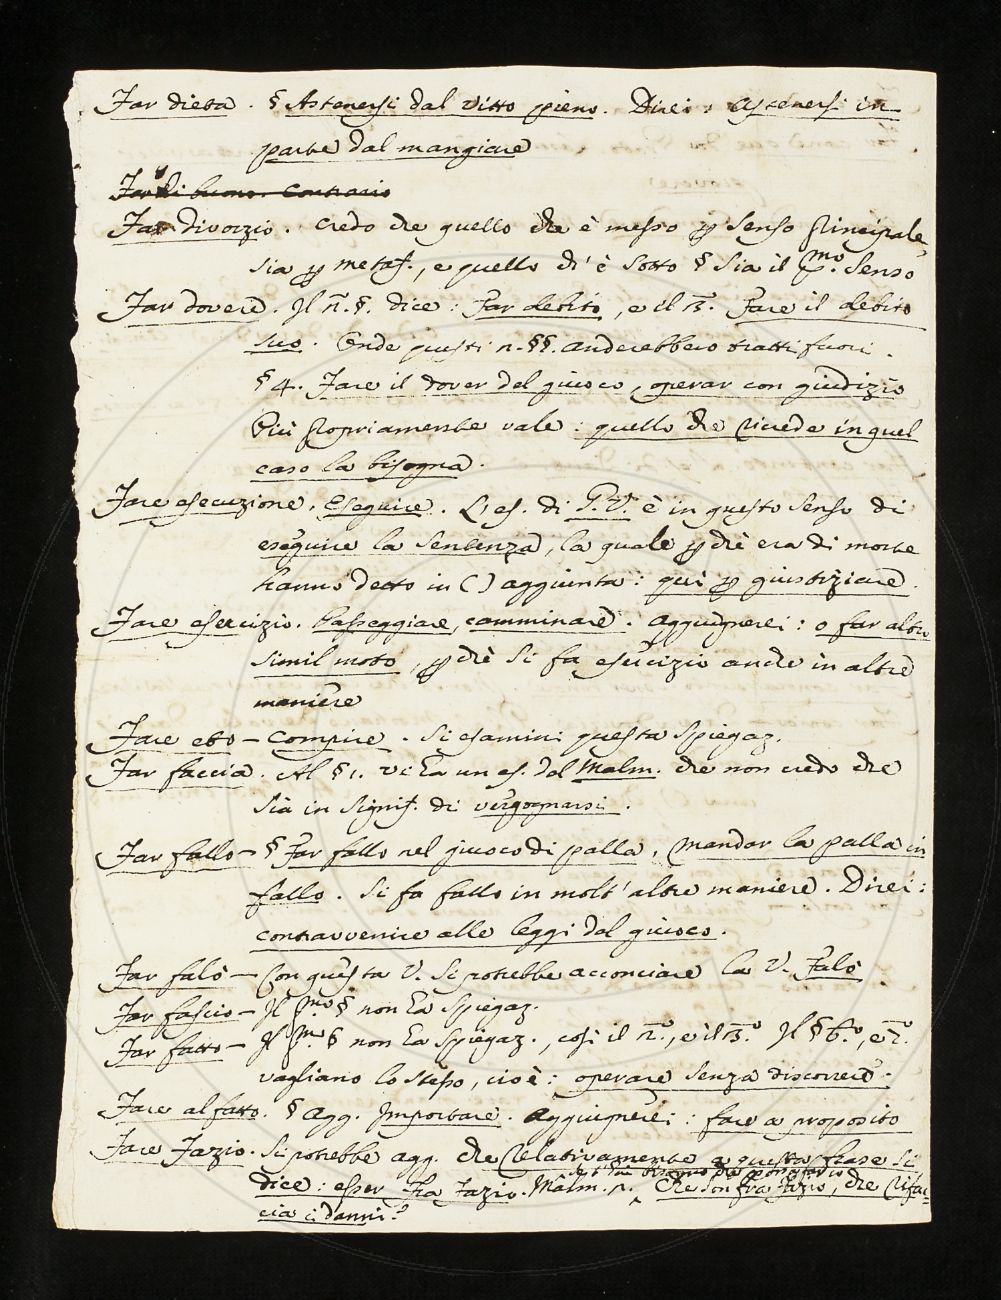 Far dieta. § Astenersi dal vitto pieno. Direi: astenersi in
parte dal mangiare
Far di buono. contrario
Far divorzio. credo che quello che è messo p senso principale,
sia p metaf., e quello ch'è sotto § sia il p.mo senso
Far dovere. Il n. §. dice: Far debito, e il 3. Fare il debito
suo. Onde questi n. §§. anderebbero tratti fuori.
§ 4. Fare il dover del giuoco, operar con giudizio
Più propriamente vale: quello che richiede in quel
caso la bisogna.
Fare esecuzione. Eseguire. L'es. di G.V. è in questo senso di
eseguire la sentenza, la quale p chè era di morte
hanno detto in ( ) aggiunta: qui p giustiziare.
Fare esercizio. Passeggiare, camminare. aggiugnerei: o far altro
simil moto, p chè si fa esercizio anche in altre
maniere
Fare eto - compire. Si esamini questa spiegaz.
Far faccia. Al § 1. vi ha un es. del Malm. che non credo che
sia in signif. di vergognarsi.
Far fallo - § Far fallo nel giuoco di palla, mandar la palla in
fallo. Si fa fallo in molt'altre maniere. Direi:
contravvenire alle leggi del giuoco.
Far falò - Con questa V. si potrebbe acconciare la V. Falò
Far fascio - Il p.mo § non ha spiegaz.
Far fatto - Il p.mo § non ha spiegaz., così il 2.o, e il 3.o Il § 6.o, e 7.o
vagliano lo stesso, cioè: operare senza discorrere.
Fare al fatto. § agg. Importare. aggiugnerei: fare a proposito
Fare Fazio. Si potrebbe agg. che relativamente a questa frase si
dice: esser Fra Fazio. Malm. Che son fra Fazio, che rifac-
cia i danni?